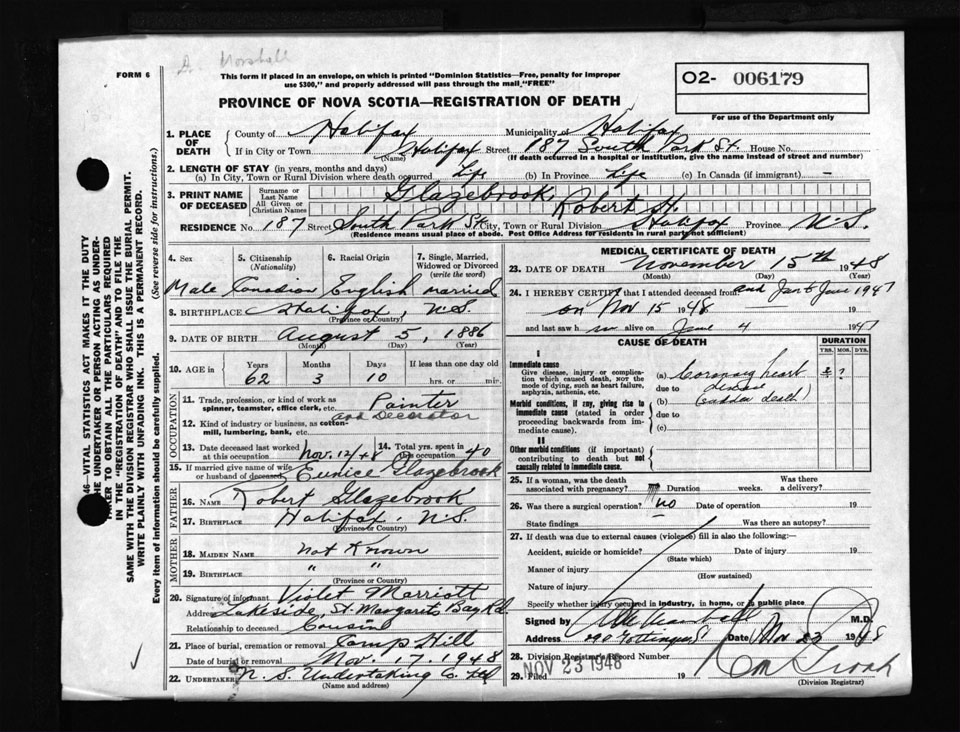 Marshall
FORM 6
This form if placed in an envelope, on which is printed "Dominion Statistics—Free, penalty for improper
use $300," and properly addressed will pass through the mail "FREE"
O2- 006179
For use of the Department only
PROVINCE OF NOVA SCOTIA—REGISTRATION OF DEATH
1. PLACE OF DEATH
County of Halifax Municipality of Halifax
If in City or Town Halifax Street 187 South Park St. House No.
(Name) (If death occurred in a hospital or institution, give the name instead of street and number)
2. LENGTH OF STAY (in years, months and days)
(a) In City, Town or Rural Division where death occurred Life (b) In Province Life (c) In Canada (if immigrant) —
3. PRINT NAME OF DECEASED
Surname or Last Name Glazebrook
All Given or Christian Names Robert H.
RESIDENCE No. 187 Street South Park St. City, Town or Rural Division Halifax Province N.S.
(Residence means usual place of abode. Post Office Address for residents in rural parts not sufficient)
4. Sex
5. Citizenship (Nationality)
6. Racial Origin
7. Single, Married, Widowed or Divorced (write the word)
Male Canadian English Married
8. BIRTHPLACE Halifax, N.S.
(Province or Country)
9. DATE OF BIRTH August 5, 1886
(Month) (Day) (Year)
10. AGE in
Years Months Days If less than one day old
62 3 10 hrs. or min.
OCCUPATION
11. Trade, profession, or kind of work as
spinner, teamster, office clerk, etc. Painter
and Decorator
12. Kind of industry or business, as cotton-
mill, lumbering, bank, etc.
13. Date deceased last worked at this occupation Nov. 12/48
14. Total yrs. spent in this occupation 40
15. If married give name of wife or husband of deceased Eunice Glazebrook
FATHER
16. Name Robert Glazebrook
17. BIRTHPLACE Halifax, N.S.
(Province or Country)
MOTHER
18. MAIDEN NAME Not Known
19. BIRTHPLACE " "
(Province or Country)
20. Signature of informant Violet Marriott
Address Lakeside, St. Margarets Bay Rd.
Relationship to deceased Cousin
21. Place of burial, cremation or removal Camp Hill
Date of burial or removal Nov. 17, 1948
22. UNDERTAKER N. S. Undertaking Co. Ltd
(Name and address)
MEDICAL CERTIFICATE OF DEATH
23. DATE OF DEATH November 15th 1948
(Month) (Day) (Year)
24. I HEREBY CERTIFY that I attended deceased from and Jan to June 1947
on Nov 15 1948 19
and last saw him alive on June 4 1947
CAUSE OF DEATH
DURATION
YRS. MOS. DYS.
I
Immediate cause
Give disease, injury or complication which caused death, not the mode of dying, such as heart failure, asphyxia, asthenia, etc.
(a) Coronary heart
due to disease
Morbid conditions, if any, giving rise to immediate cause (stated in order proceeding backwards from immediate cause).
(b) (sudden death)
due to
(c)
II
Other morbid conditions (if important) contributing to death but not causally related to immediate cause.
25. If a woman, was the death associated with pregnancy? Duration weeks. Was there a delivery?
26. Was there a surgical operation? no Date of operation 19
State findings Was there an autopsy?
27. If death was due to external causes (violence) fill in also the following:—
Accident, suicide or homicide? Date of injury 19
(State which)
Manner of injury
(How sustained)
Nature of injury
Specify whether injury occurred in industry, in home, or in public place
Signed by M.D.
Address Gottingen St Date Nov 23 1948
28. Division Registrar's Record Number
NOV 23 1948
29. Filed 19
(Division Registrar)
46—VITAL STATISTICS ACT MAKES IT THE DUTY
THE UNDERTAKER OR PERSON ACTING AS UNDER-
TAKER TO OBTAIN ALL THE PARTICULARS REQUIRED
IN THE "REGISTRATION OF DEATH" AND TO FILE THE
SAME WITH THE DIVISION REGISTRAR WHO SHALL ISSUE THE BURIAL PERMIT.
WRITE PLAINLY WITH UNFADING INK. THIS IS A PERMANENT RECORD.
Every item of information should be carefully supplied. (See reverse side for instructions.)